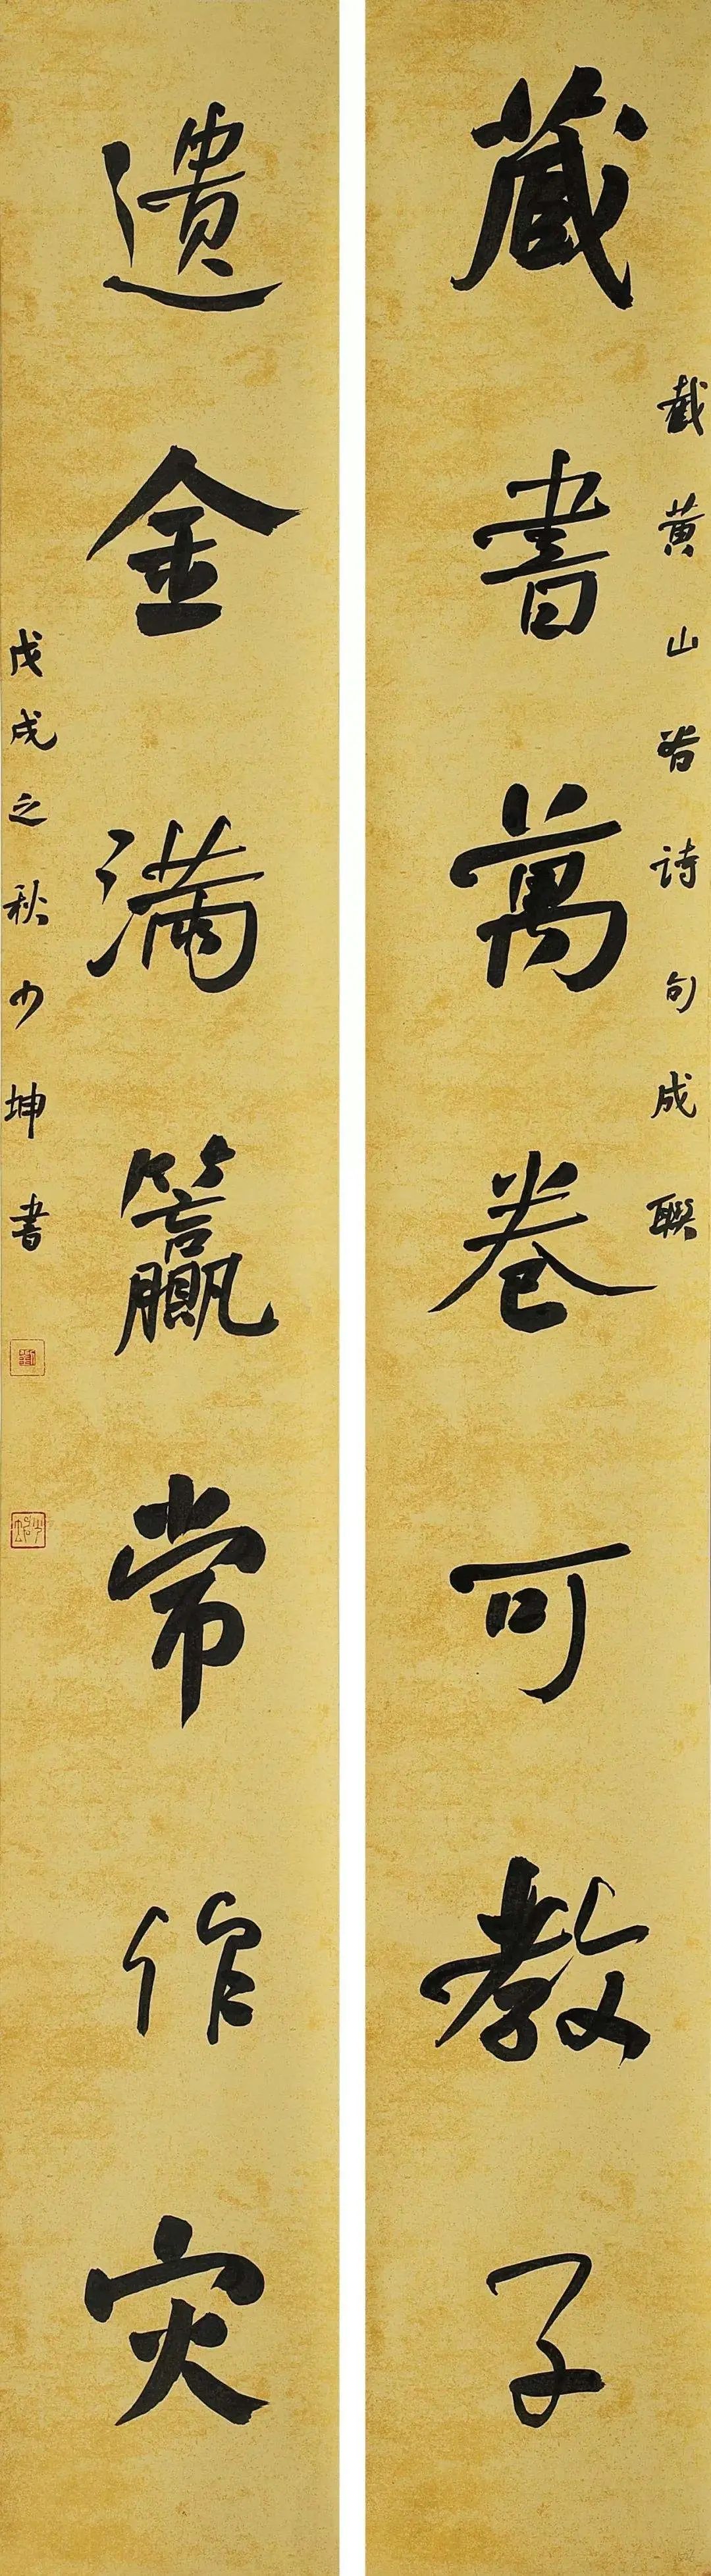 藏書萬卷可教子
截黄山谷诗句成聯
遺金满籯常作灾
戊戌之秋少坤書